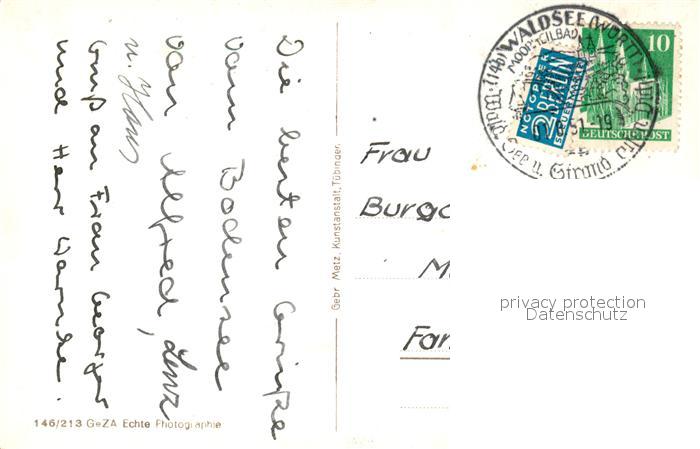 Die besten Grüße
vom Bodensee
von Alfred, Lenz
u. Hans
Gruß an Frau George
und Herr Warnke.
146/213 GeZA Echte Photographie
Gebr. Metz, Kunstanstalt, Tübingen
WALDSEE (WÜRTT)
MOORHEILBAD
See u. Strand
NOTOPFER
2 BERLIN
STEUERMARKE
10
DEUTSCHE POST
Frau
Burg
M
Fan
privacy protection
Datenschutz